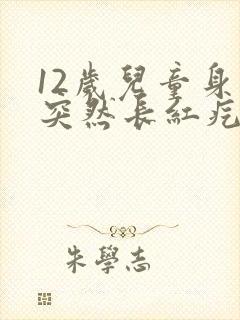 12歲兒童身
突然長紅疙
朱學志